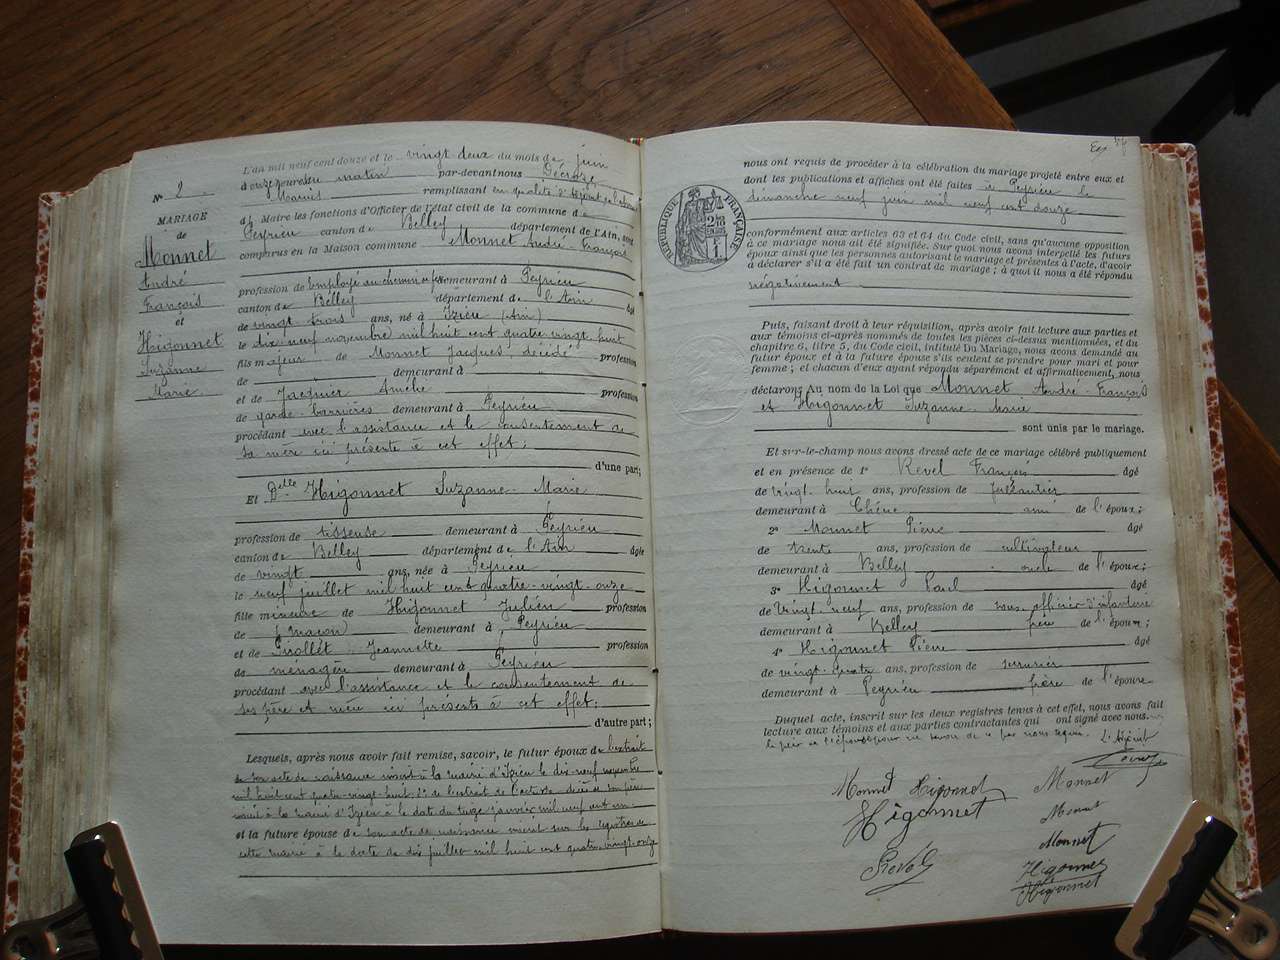 L'an mil neuf cent douze et le vingt deux du mois de juin
N° 2
à onze heures du matin par-devant nous Décroze
Marius remplissant en qualité d'Adjoint
MARIAGE
de
Monnet
André
François
et
Higonnet
Suzanne
Marie
du Maire les fonctions d'Officier de l'état civil de la commune de
Peyrieu canton de Belley département de l'Ain, sont
comparus en la Maison commune Monnet André François
profession de employé au chemin de fer demeurant à Peyrieu
canton de Belley département de l'Ain âgé
de vingt trois ans, né à Izieu (Ain)
le dix neuf novembre mil huit cent quatre vingt huit
fils majeur de Monnet Jacques décédé profession
de demeurant à
et de Jacquier Amélie profession
de garde-barrières demeurant à Peyrieu
procédant avec l'assistance et le consentement de
sa mère ici présente à cet effet;
d'une part;
Et Delle Higonnet Suzanne Marie
profession de tisseuse demeurant à Peyrieu
canton de Belley département de l'Ain âgée
de vingt ans, née à Peyrieu
le neuf juillet mil huit cent quatre-vingt-onze
fille mineure de Higonnet Julien profession
de (maçon) demeurant à Peyrieu
et de Pirollet Jeannette profession
de ménagère demeurant à Peyrieu
procédant avec l'assistance et le consentement de
ses père et mère ici présents à cet effet;
d'autre part;
Lesquels, après nous avoir fait remise, savoir, le futur époux de l'extrait
de son acte de naissance inscrit à la mairie d'Izieu le dix-neuf novembre
mil huit cent quatre-vingt-huit 2° de l'extrait de l'acte de décès de son père
inscrit à la mairie d'Izieu à la date du treize janvier mil neuf cent un
et la future épouse de son acte de naissance inscrit sur les registres de
cette mairie à la date de dix juillet mil huit cent quatre-vingt-onze
nous ont requis de procéder à la célébration du mariage projeté entre eux et
dont les publications et affiches ont été faites à Peyrieu le
dimanche neuf juin mil neuf cent douze
RÉPUBLIQUE FRANÇAISE
conformément aux articles 63 et 64 du Code civil, sans qu'aucune opposition
à ce mariage nous ait été signifiée. Sur quoi nous avons interpellé les futurs
époux ainsi que les personnes autorisant le mariage et présentes à l'acte, d'avoir
à déclarer s'il a été fait un contrat de mariage; à quoi il nous a été répondu
négativement
Puis, faisant droit à leur réquisition, après avoir fait lecture aux parties et
aux témoins ci-après nommés de toutes les pièces ci-dessus mentionnées, et du
chapitre 6, titre 5, du Code civil, intitulé Du Mariage, nous avons demandé au
futur époux et à la future épouse s'ils veulent se prendre pour mari et pour
femme; et chacun d'eux ayant répondu séparément et affirmativement, nous
déclarons Au nom de la Loi que Monnet André-François
et Higonnet Suzanne Marie
sont unis par le mariage.
Et sur-le-champ nous avons dressé acte de ce mariage célébré publiquement
et en présence de 1° Revel François âgé
de vingt-huit ans, profession de
demeurant à Chêne ami de l'époux;
2° Monnet Pierre âgé
de trente ans, profession de cultivateur
demeurant à Belley oncle de l'époux;
3° Higonnet Paul âgé
de vingt-neuf ans, profession de sous officier d'infanterie
demeurant à Belley frère de l'épouse;
4° Higonnet Pierre âgé
de vingt-quatre ans, profession de serrurier
demeurant à Peyrieu frère de l'épouse
Duquel acte, inscrit sur les deux registres tenus à cet effet, nous avons fait
lecture aux témoins et aux parties contractantes qui ont signé avec nous.
L'Adjoint
Monnet Higonnet Monnet
Higonnet Monnet
Monnet
Revel Higonnet
Higonnet